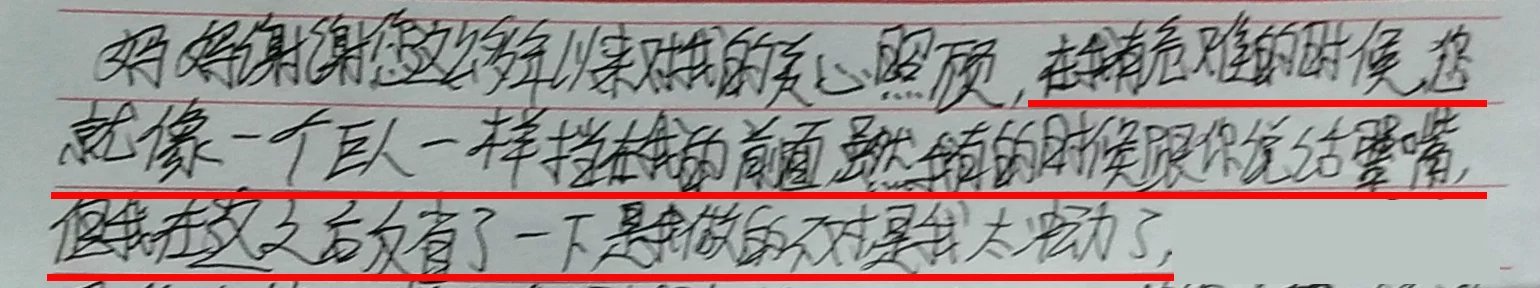 妈妈谢谢您这么多年以来对我的关心照顾,在我有危难的时候,您
就像一个巨人一样挡在我的前面,虽然我有的时候跟你说话嘴,
但我在这之后反省了一下是我做的不对是我太冲动了,